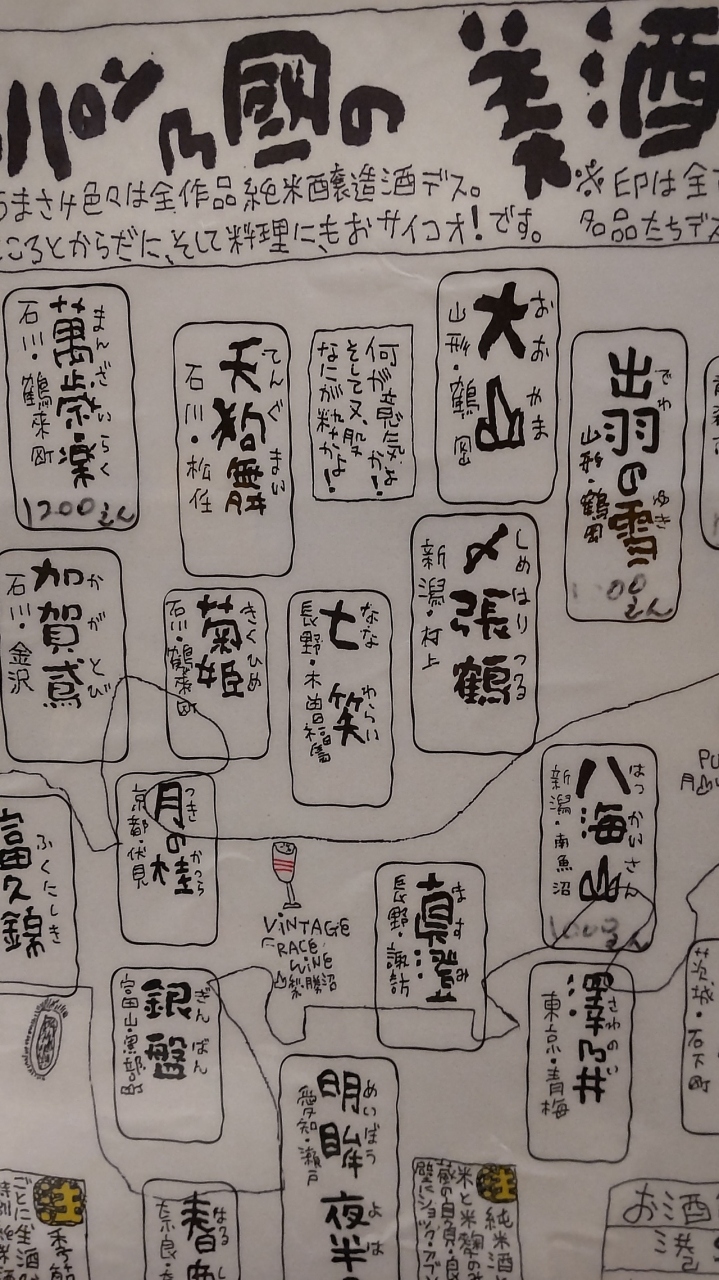 ッパン乃國の 美酒
うまさけ色々は全作品純米醸造酒デス。
ころとからだに、そして料理に、もおサイコオ!です。
※印は全て
名品たちデス
萬歳楽
まんざいらく
石川・鶴来町
1200えん
天狗舞
てんぐまい
石川・松任
何が意気よ
そして又、股か!
なにが粋かよ!
大山
おおやま
山形・鶴岡
出羽の雪
でわ ゆき
山形・鶴岡
00えん
加賀鳶
かがとび
石川・金沢
菊姫
きくひめ
石川・鶴来町
七笑
ななわらい
長野・木曽福島
〆張鶴
しめはりつる
新潟・村上
月の桂
つき かつら
京都・伏見
八海山
はっかいさん
新潟・南魚沼
えん
富久錦
ふくにしき
VINTAGE
GRACE
WINE
山梨勝沼
真澄
ますみ
長野・諏訪
澤乃井
さわのい
東京・青梅
茨城・石下町
銀盤
ぎんばん
富山・黒部町
明眸
めいぼう
愛知・瀬戸
夜半
よは
春鹿
はるし
奈良・奈
注
ごとに生酒
特別純米酒
注
純米酒と
米と米麹のみ
お酒